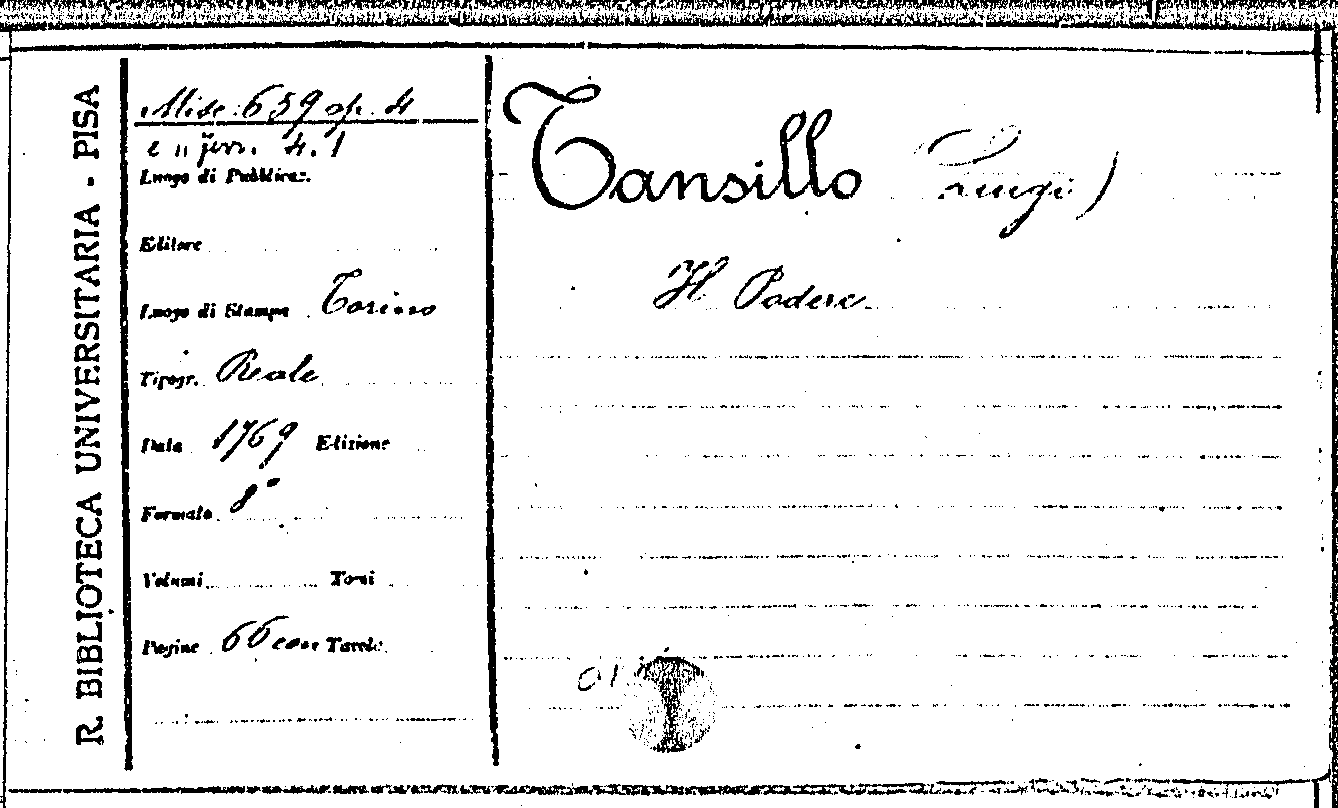 R. BIBLIOTECA UNIVERSITARIA - PISA
Misc. 659 op. 4
e 4. 1
Luogo di Pubblicaz.
Editore
Luogo di Stampa Torino
Tipogr. Reale
Data 1769 Edizione
Formato 8°
Volumi Tomi
Pagine 66 con Tavole
Tansillo (Luigi)
Il Podere